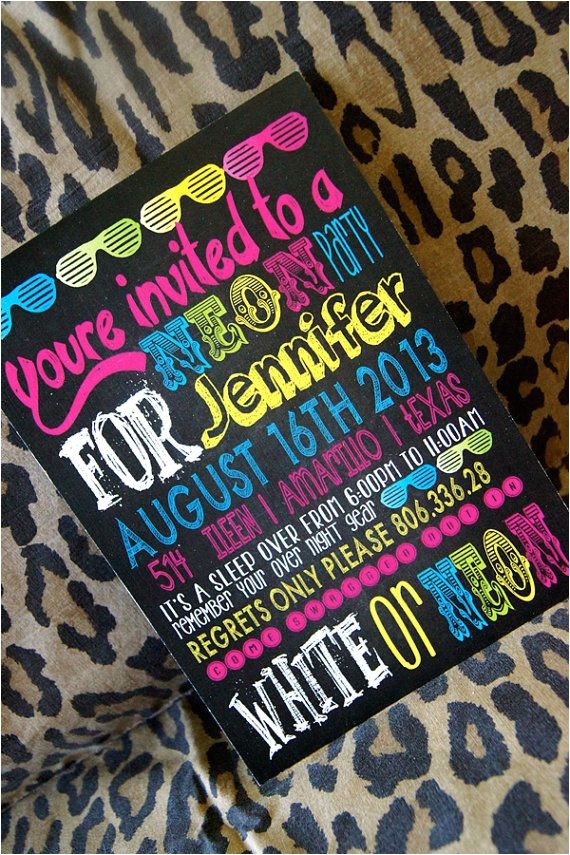 youre invited to a
NEON PARTY
FOR Jennifer
AUGUST 16TH 2013
514 ILEEN | AMARILLO | TEXAS
IT'S A SLEEP OVER FROM 6:00PM TO 11:00AM
remember your over night gear
REGRETS ONLY PLEASE 806.336.28
COME SWAGGED OUT IN
WHITE or NEON